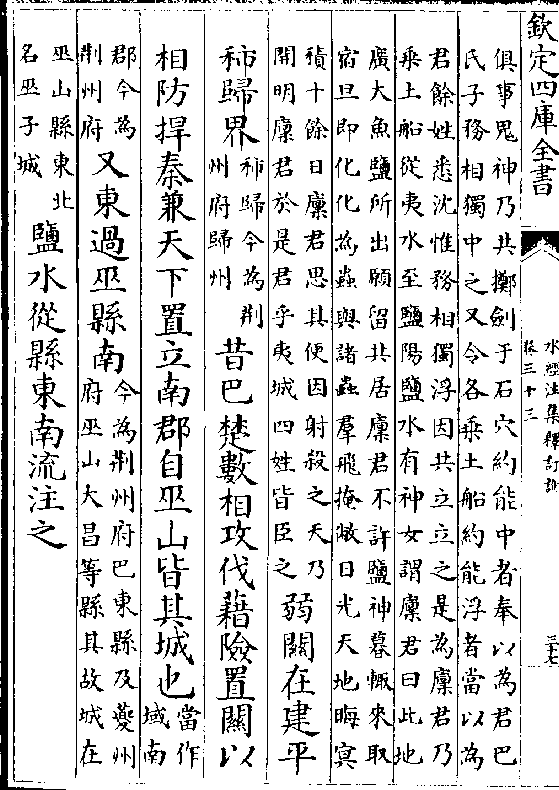 欽定四庫全書
水經注集釋訂訛
卷三十三
三十七
俱事鬼神乃共擲劍于石穴約能中者奉以為君巴
氏子務相獨中之又令各乘土船約能浮者當以為
君餘姓悉沈惟務相獨浮因共立之是為廩君乃
乘土船從夷水至鹽陽鹽水有神女謂廩君曰此地
廣大魚鹽所出願留共居廩君不許鹽神暮輒來取
宿旦即化化為蟲與諸蟲羣飛掩蔽日光天地晦冥
積十餘日廩君思其便因射殺之天乃
開明廩君於是君乎夷城四姓皆臣之
弱關在建平
秭歸界
秭歸今為荆
州府歸州
昔巴楚數相攻伐藉險置關以
相防捍秦兼天下置立南郡自巫山皆其城也
當作
域南
郡今為
荆州府
又東過巫縣南
今為荆州府巴東縣及夔州
府巫山大昌等縣其故城在
巫山縣東北
名巫子城
鹽水從縣東南流注之